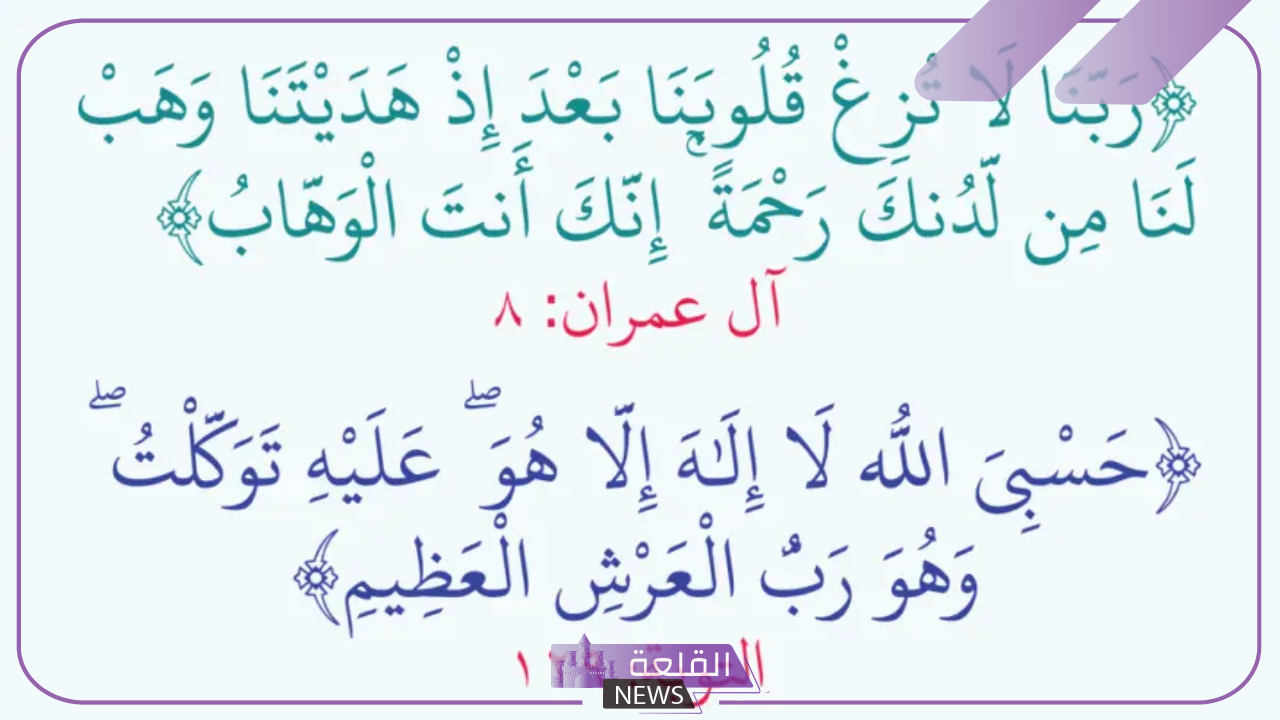 ﴿رَبَّنَا لَا تُزِغْ قُلُوبَنَا بَعْدَ إِذْ هَدَيْتَنَا وَهَبْ
لَنَا مِن لَّدُنكَ رَحْمَةً ۚ إِنَّكَ أَنتَ الْوَهَّابُ﴾
آل عمران: ٨
﴿حَسْبِيَ اللَّه لَا إِلَٰهَ إِلَّا هُوَ ۖ عَلَيْهِ تَوَكَّلْتُ ۖ
وَهُوَ رَبُّ الْعَرْشِ الْعَظِيمِ﴾
القلعة
NEWS